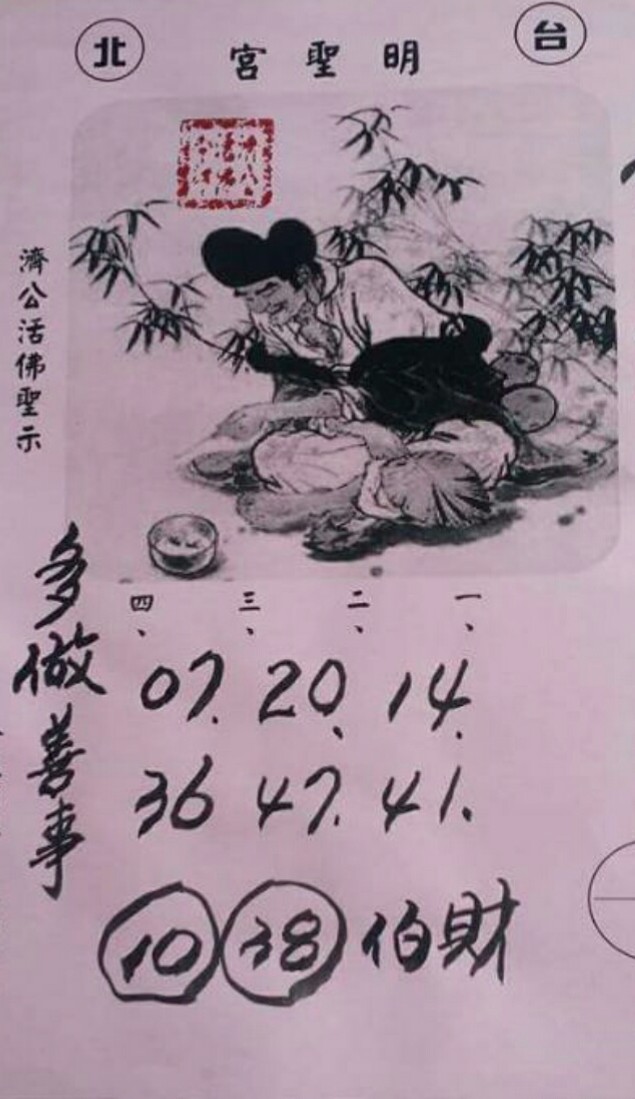 台北
明聖宮
濟公活佛聖示
一、
二、
三、
四、
14. 20、 07.
41. 47. 36
財伯 38 10
多做善事